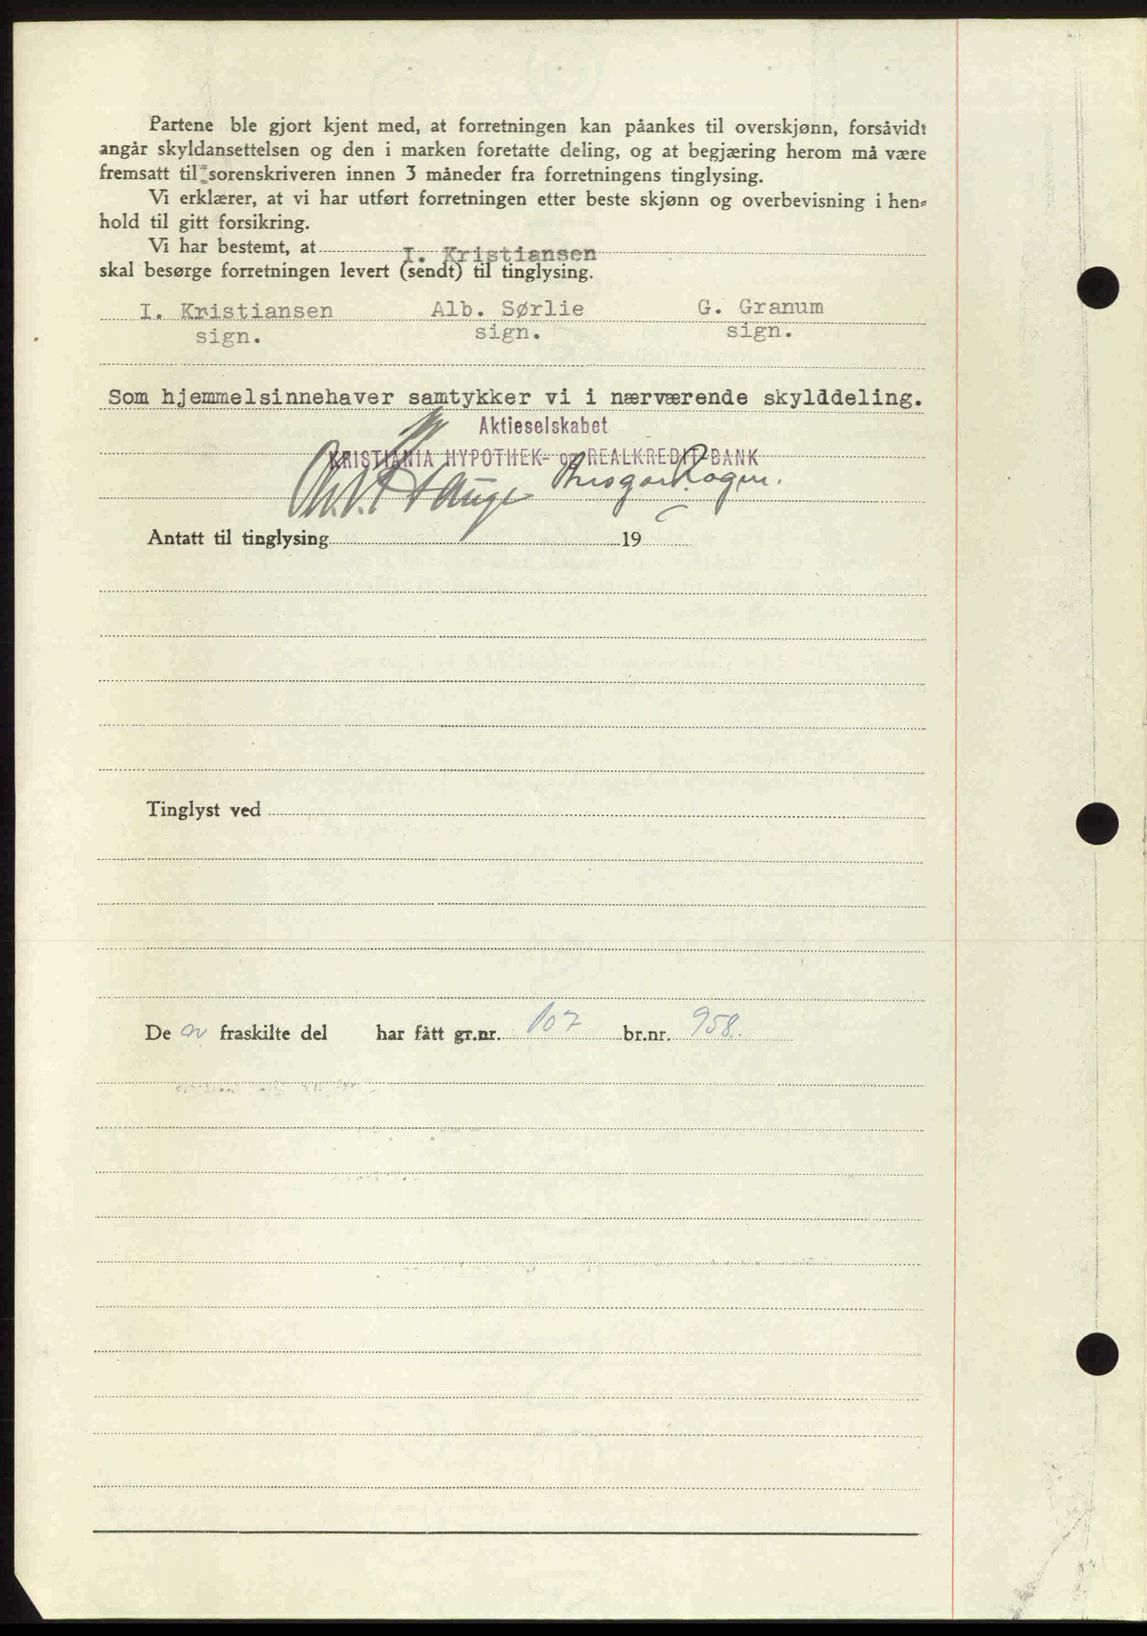 Partene ble gjort kjent med, at forretningen kan påankes til overskjønn, forsåvidt
angår skyldansettelsen og den i marken foretatte deling, og at begjæring herom må være
fremsatt til sorenskriveren innen 3 måneder fra forretningens tinglysing.
Vi erklærer, at vi har utført forretningen etter beste skjønn og overbevisning i hen-
hold til gitt forsikring.
Vi har bestemt, at I. Kristiansen
skal besørge forretningen levert (sendt) til tinglysing.
I. Kristiansen Alb. Sørlie G. Granum
sign. sign. sign.
Som hjemmelsinnehaver samtykker vi i nærværende skylddeling.
Aktieselskabet
KRISTIANIA HYPOTHEK- og REALKREDIT-BANK
Antatt til tinglysing 19
Tinglyst ved
De n fraskilte del har fått gr.nr. 107 br.nr. 958.